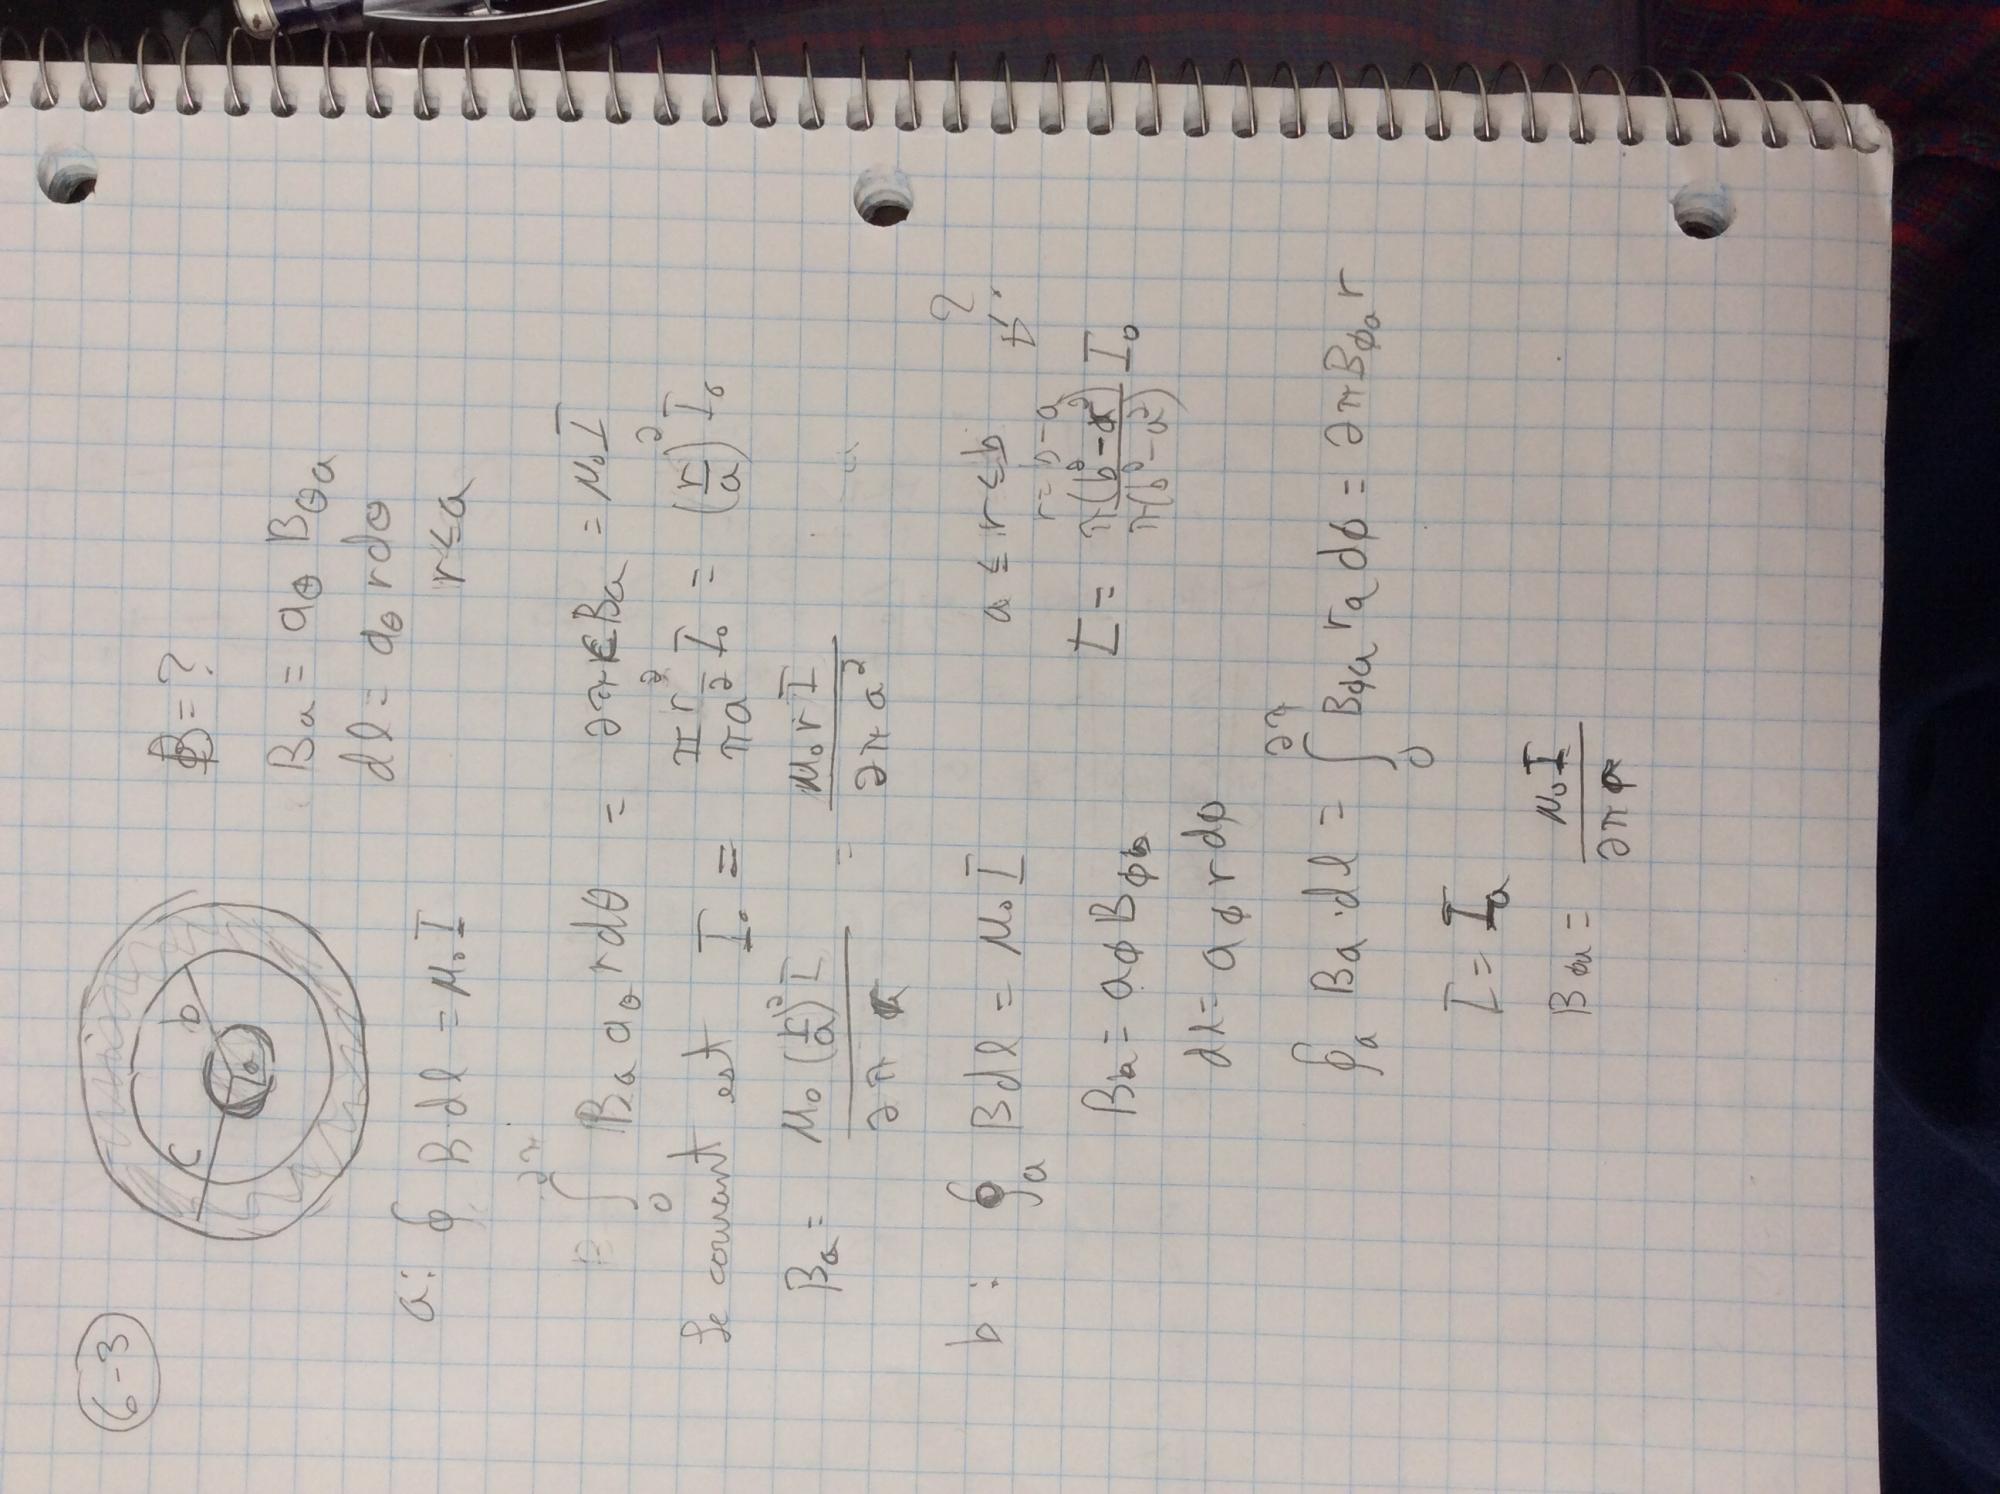 6-3
b
c
a
B = ?
B_a = a_θ B_θa
dl = a_θ r dθ
a: ∮ B dl = μ₀ I
r ≤ a
= ∫₀^2π B_a a_θ r dθ = 2π r B_a = μ₀ I
Le courant est I₀ = πr²/πa² I₀ = (r/a)² I₀
B_a = μ₀ (r/a)² I / 2π r = μ₀ r I / 2π a²
b: ∮_a B dl = μ₀ I a ≤ r ≤ b ?
r = b - a
B_a = a_φ B_φb I = π(b² - r²)/π(b² - a²) I₀
dl = a_φ r dφ
∮_a B_a · dl = ∫₀^2π B_φa r_a dφ = 2π B_φa r
I = I_a
B_φa = μ₀ I / 2π r